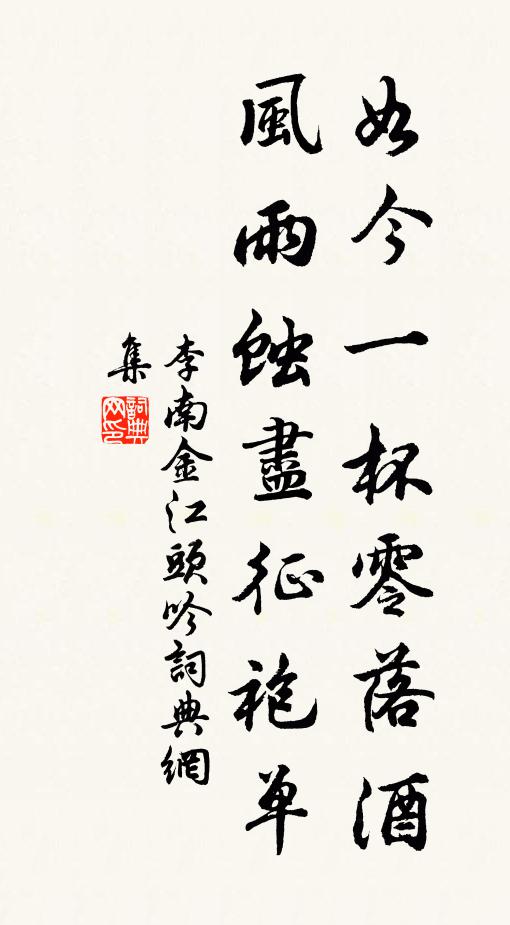 如今一杯零落酒
風雨蝕盡征袍单
李南金江頭吟詞典網
集
詞典
网印